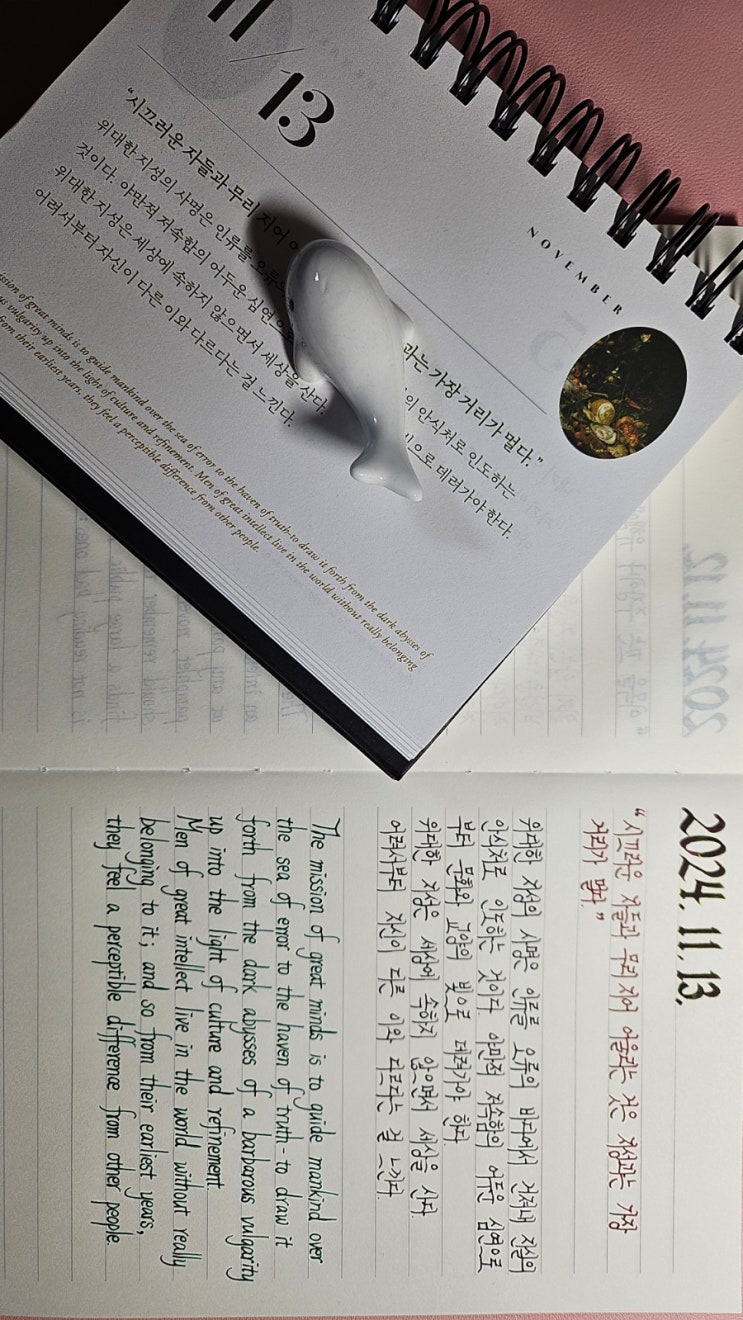 11/13
NOVEMBER
“시끄러운 자들과 무리 지어
과는 가장 거리가 멀다.”
위대한 지성의 사명은 인류를 오류의
의 안식처로 인도하는
것이다. 야만적 저속함의 어두운 심연으로
빛으로 데려가야 한다.
위대한 지성은 세상에 속하지 않으면서 세상을 산다.
어려서부터 자신이 다른 이와 다르다는 걸 느낀다.
ission of great minds is to guide mankind over the sea of error to the haven of truth-to draw it forth from the dark abysses of
us vulgarity up into the light of culture and refinement. Men of great intellect live in the world without really belonging
from their earliest years, they feel a perceptible difference from other people.
2024. 11. 13.
“시끄러운 자들과 무리 지어 어울리는 것은 지성과는 가장
거리가 멀다.”
위대한 지성의 사명은 인류를 오류의 바다에서 건져내 진실의
안식처로 인도하는 것이다. 야만적 저속함의 어두운 심연으로
부터 문화와 교양의 빛으로 데려가야 한다.
위대한 지성은 세상에 속하지 않으면서 세상을 산다.
어려서부터 자신이 다른 이와 다르다는 걸 느낀다.
The mission of great minds is to guide mankind over
the sea of error to the haven of truth-to draw it
forth from the dark abysses of a barbarous vulgarity
up into the light of culture and refinement.
Men of great intellect live in the world without really
belonging to it; and so from their earliest years,
they feel a perceptible difference from other people.